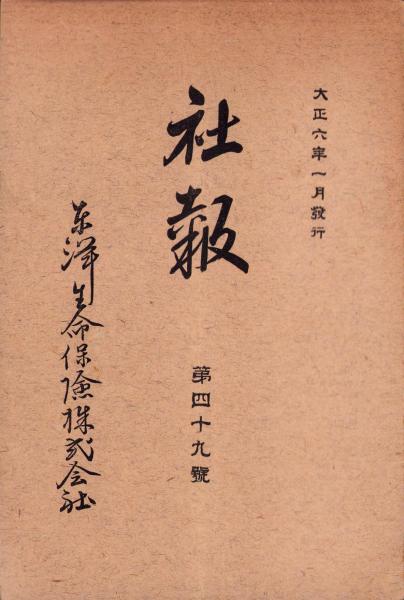 大正六年一月發行
社報
第四十九號
東洋生命保險株式会社